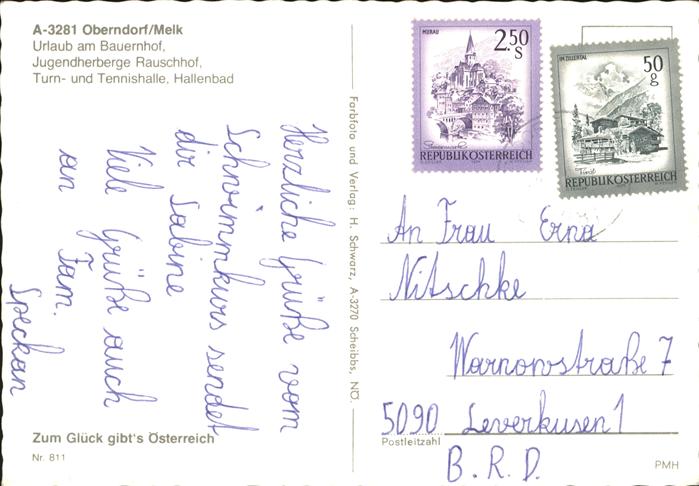 A-3281 Oberndorf/Melk
Urlaub am Bauernhof,
Jugendherberge Rauschhof,
Turn- und Tennishalle, Hallenbad
Herzliche Grüße vom
Schwimmkurs sendet
dir Sabine
Viele Grüße auch
an Fam.
Speckan
Zum Glück gibt's Österreich
Nr. 811
Farbfoto und Verlag: H. Schwarz, A-3270 Scheibbs, NÖ.
MURAU
2.50
S
Steiermark
REPUBLIK ÖSTERREICH
IM ZILLERTAL
50
g
Tirol
REPUBLIK ÖSTERREICH
An Frau Erna
Nitschke
Warnowstraße 7
5090 Leverkusen 1
Postleitzahl
B.R.D.
PMH